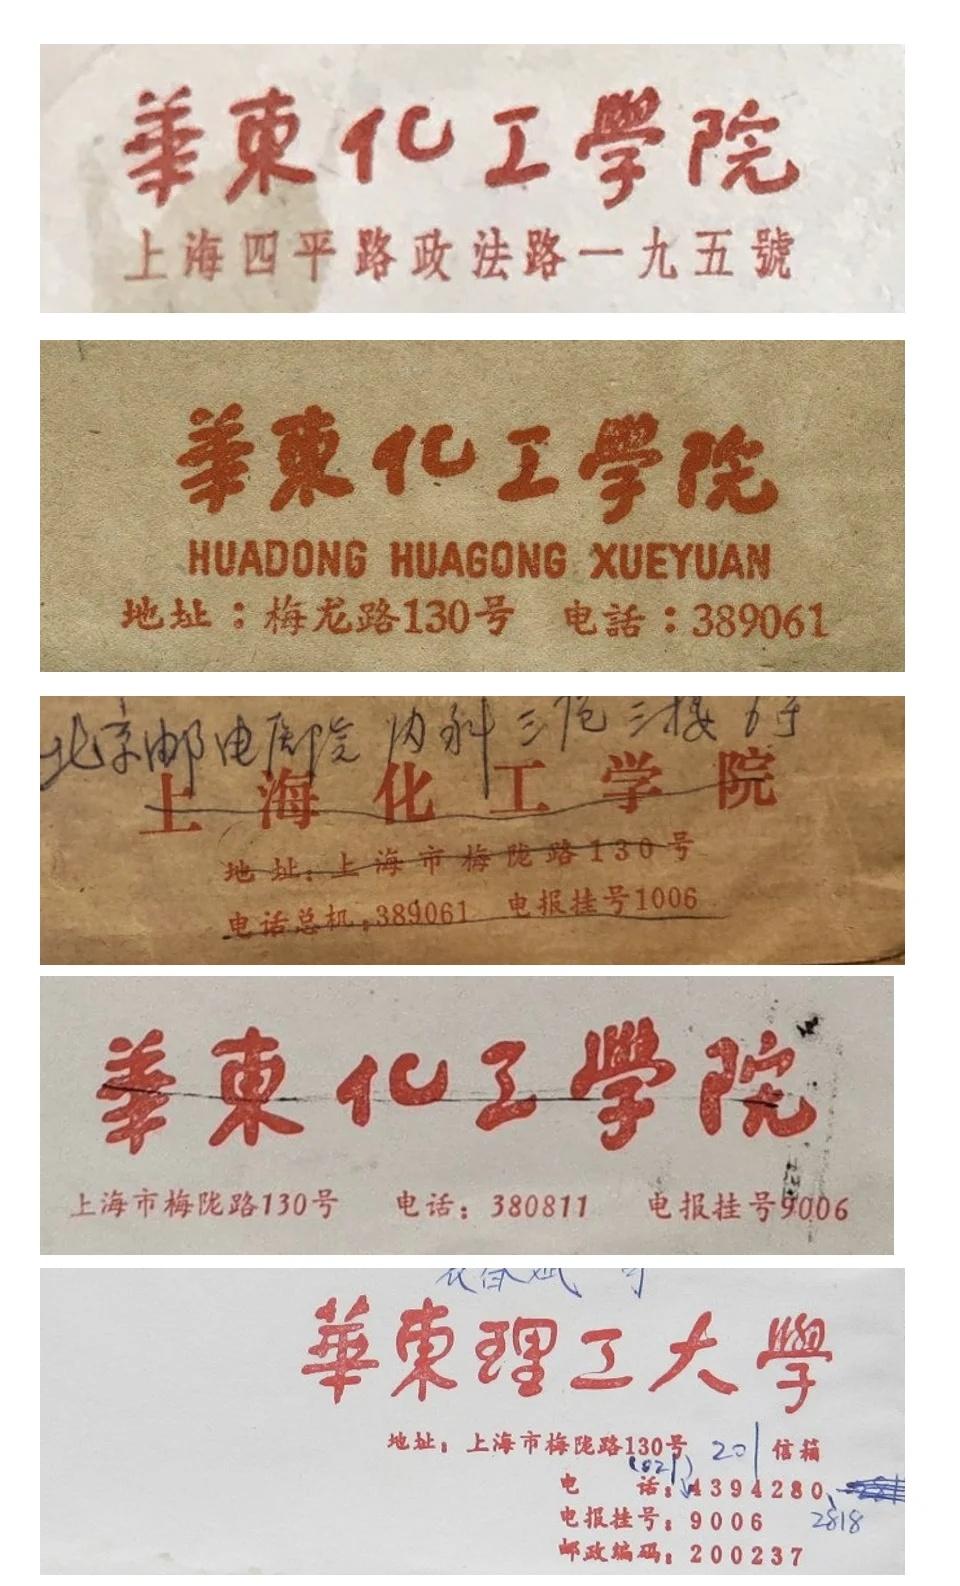 華東化工學院
上海四平路政法路一九五號
華東化工學院
HUADONG HUAGONG XUEYUAN
地址：梅龙路130号 电話：389061
北京邮电医院 内科三病三楼6号
上海化工学院
地址：上海市梅陇路130号
电话总机：389061 电报挂号1006
華東化工學院
上海市梅陇路130号 电话：380811 电报挂号9006
華東理工大學
地址：上海市梅陇路130号 201 信箱
(021)
电 话：4394280、
电报挂号：9006 2818
邮政编码：200237